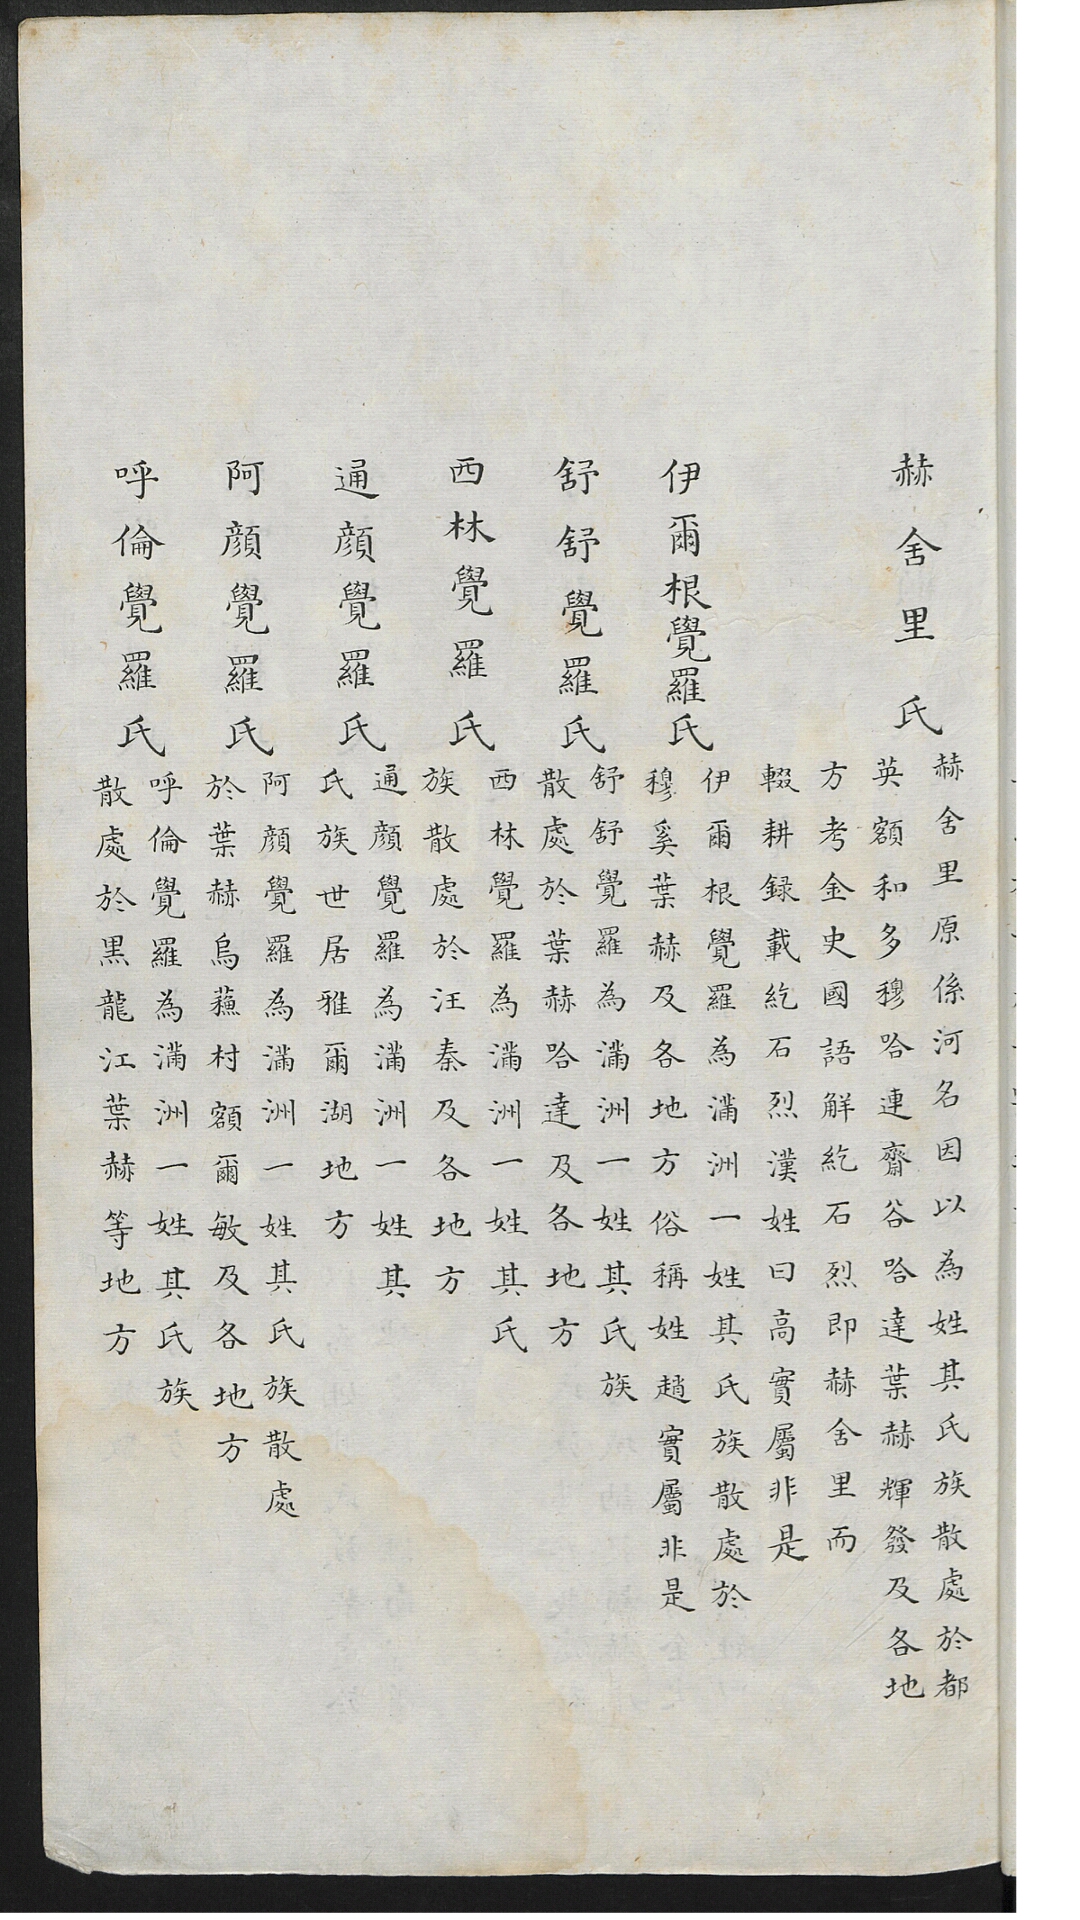 赫舍里氏
赫舍里原係河名因以為姓其氏族散處於都
英額和多穆哈連齋谷哈達葉赫輝發及各地
方考金史國語解紇石烈即赫舍里而
輟耕録載紇石烈漢姓曰高實屬非是
伊爾根覺羅氏
伊爾根覺羅為滿洲一姓其氏族散處於
穆奚葉赫及各地方俗稱姓趙實屬非是
舒舒覺羅氏
舒舒覺羅為滿洲一姓其氏族
散處於葉赫哈達及各地方
西林覺羅氏
西林覺羅為滿洲一姓其氏
族散處於汪秦及各地方
通顔覺羅氏
通顔覺羅為滿洲一姓其
氏族世居雅爾湖地方
阿顔覺羅氏
阿顔覺羅為滿洲一姓其氏族散處
於葉赫烏蘓村額爾敏及各地方
呼倫覺羅氏
呼倫覺羅為滿洲一姓其氏族
散處於黑龍江葉赫等地方